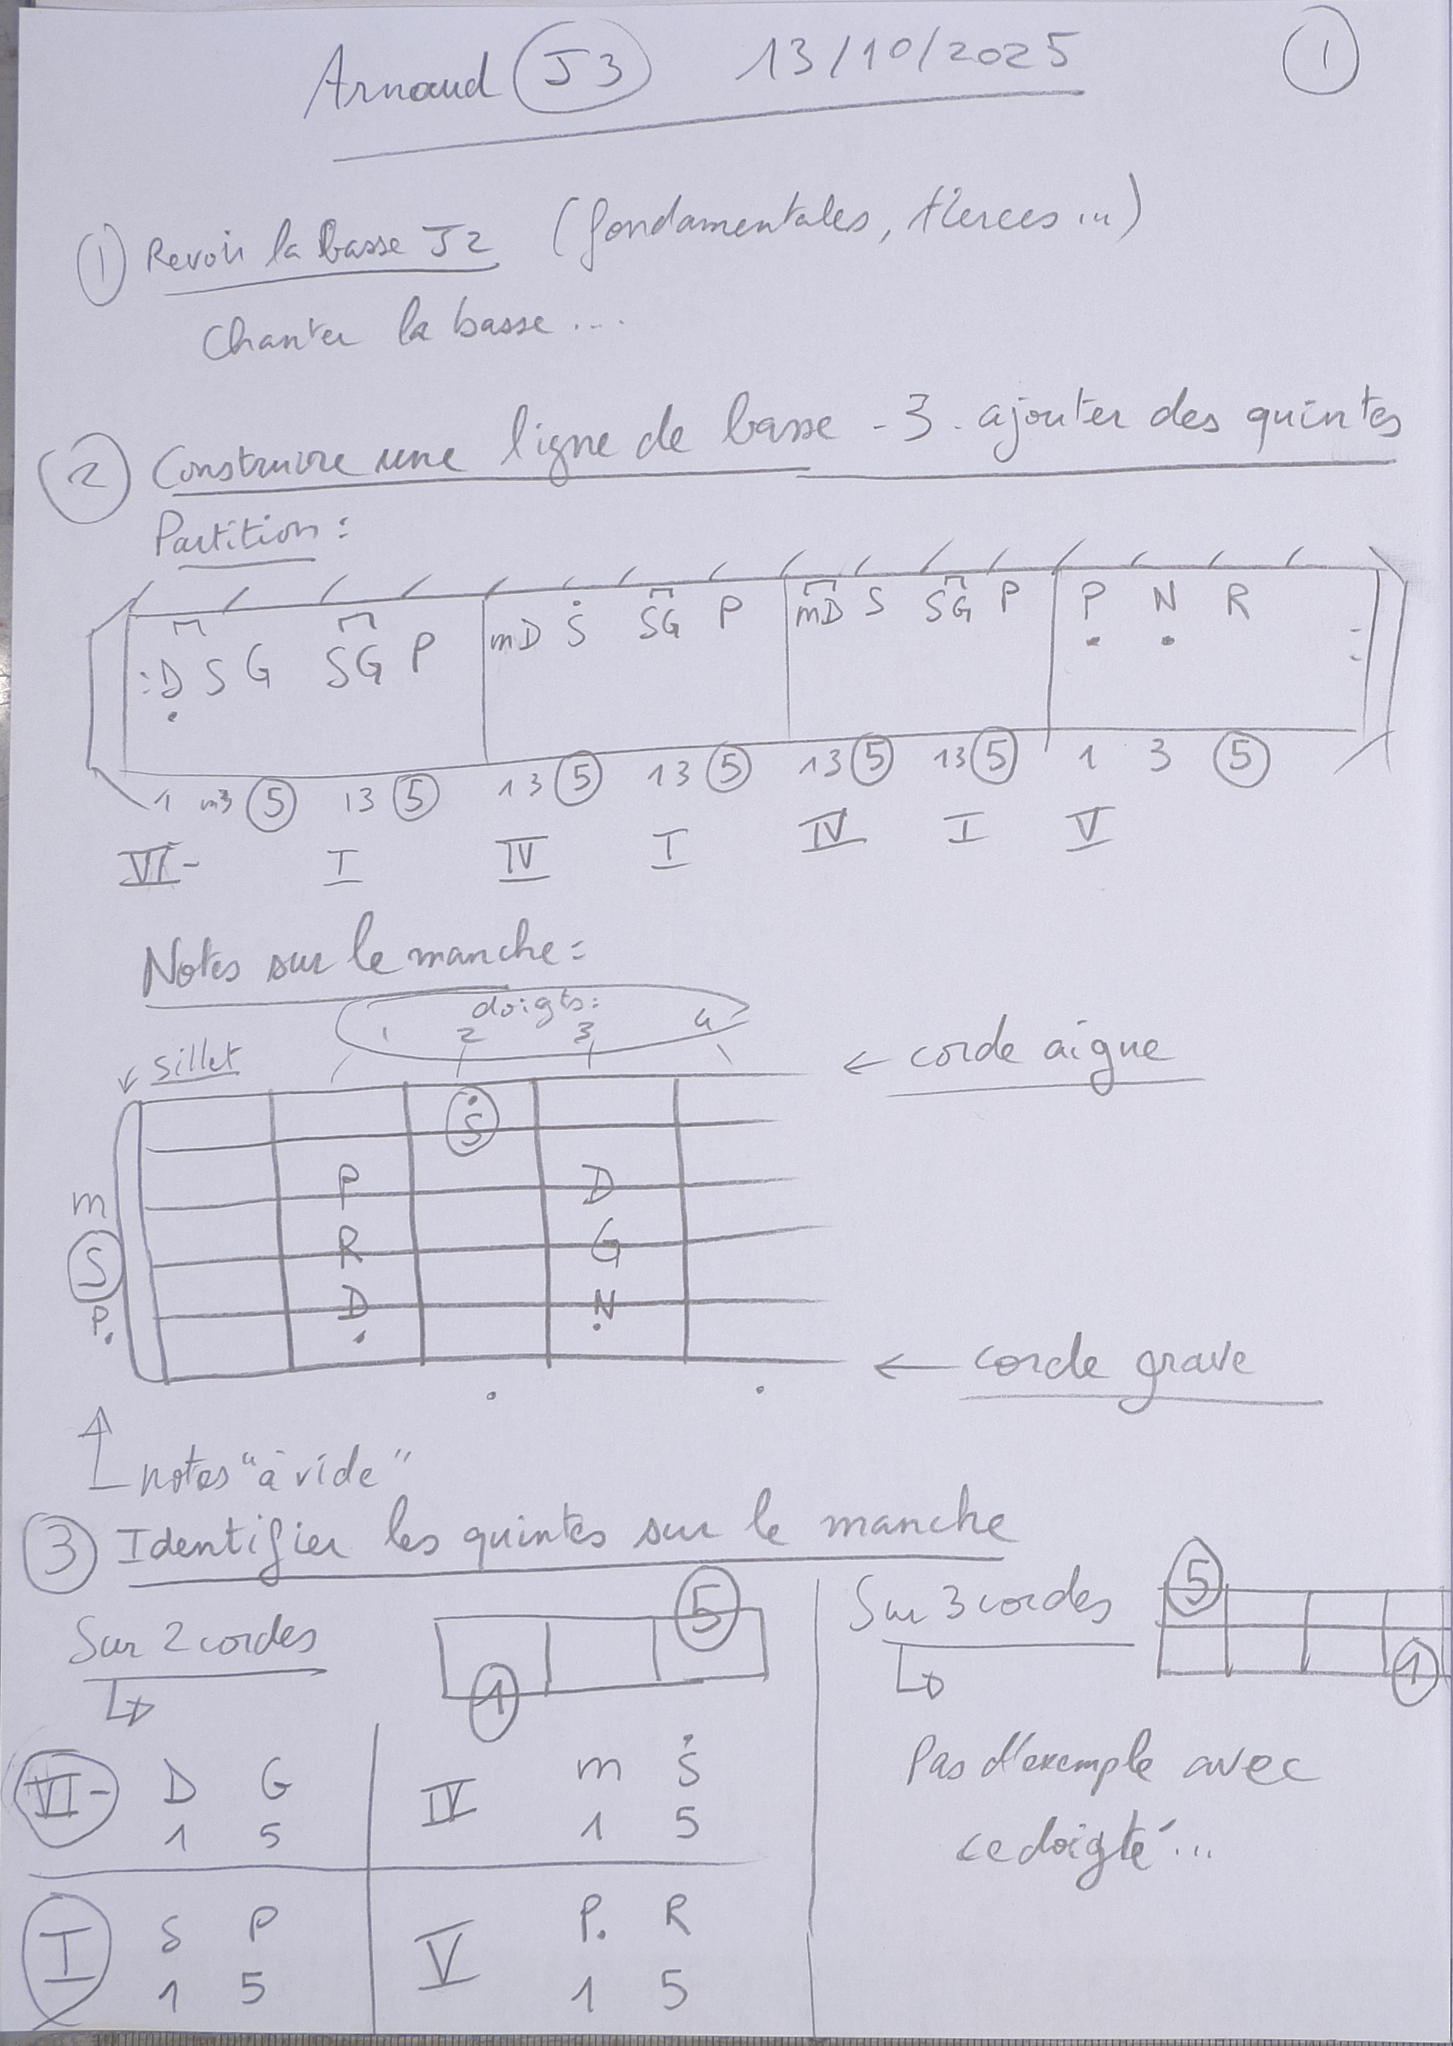 Arnaud J3 13/10/2025 1
1 Revoir la basse J2 (fondamentales, tierces...)
Chanter la basse...
2 Construire une ligne de basse - 3 - ajouter des quintes
Partition :
:Ḍ S G SG P mD Ṡ SG P mD S SG P P̣ Ṇ R :
1 m3 5 13 5 13 5 13 5 13 5 13 5 1 3 5
VI- I IV I IV I V
Notes sur le manche :
doigts :
1 2 3 4
↙ sillet
← corde aigue
Ṡ
P D
m
R G
S
Ḍ Ṇ
P.
← corde grave
notes "à vide"
3 Identifier les quintes sur le manche
Sur 2 cordes 5 1
Sur 3 cordes 5 1
VI- D G IV m Ṡ
1 5 1 5
I S P V P. R
1 5 1 5
Pas d'exemple avec
ce doigté...